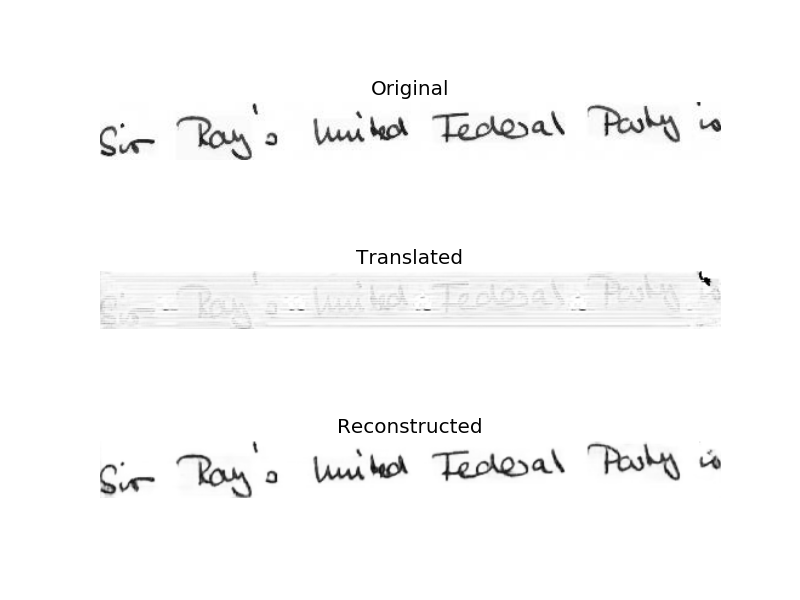 Original
Sir Ray's United Federal Party is
Translated
Sir Ray's United Federal Party is
Reconstructed
Sir Ray's United Federal Party is